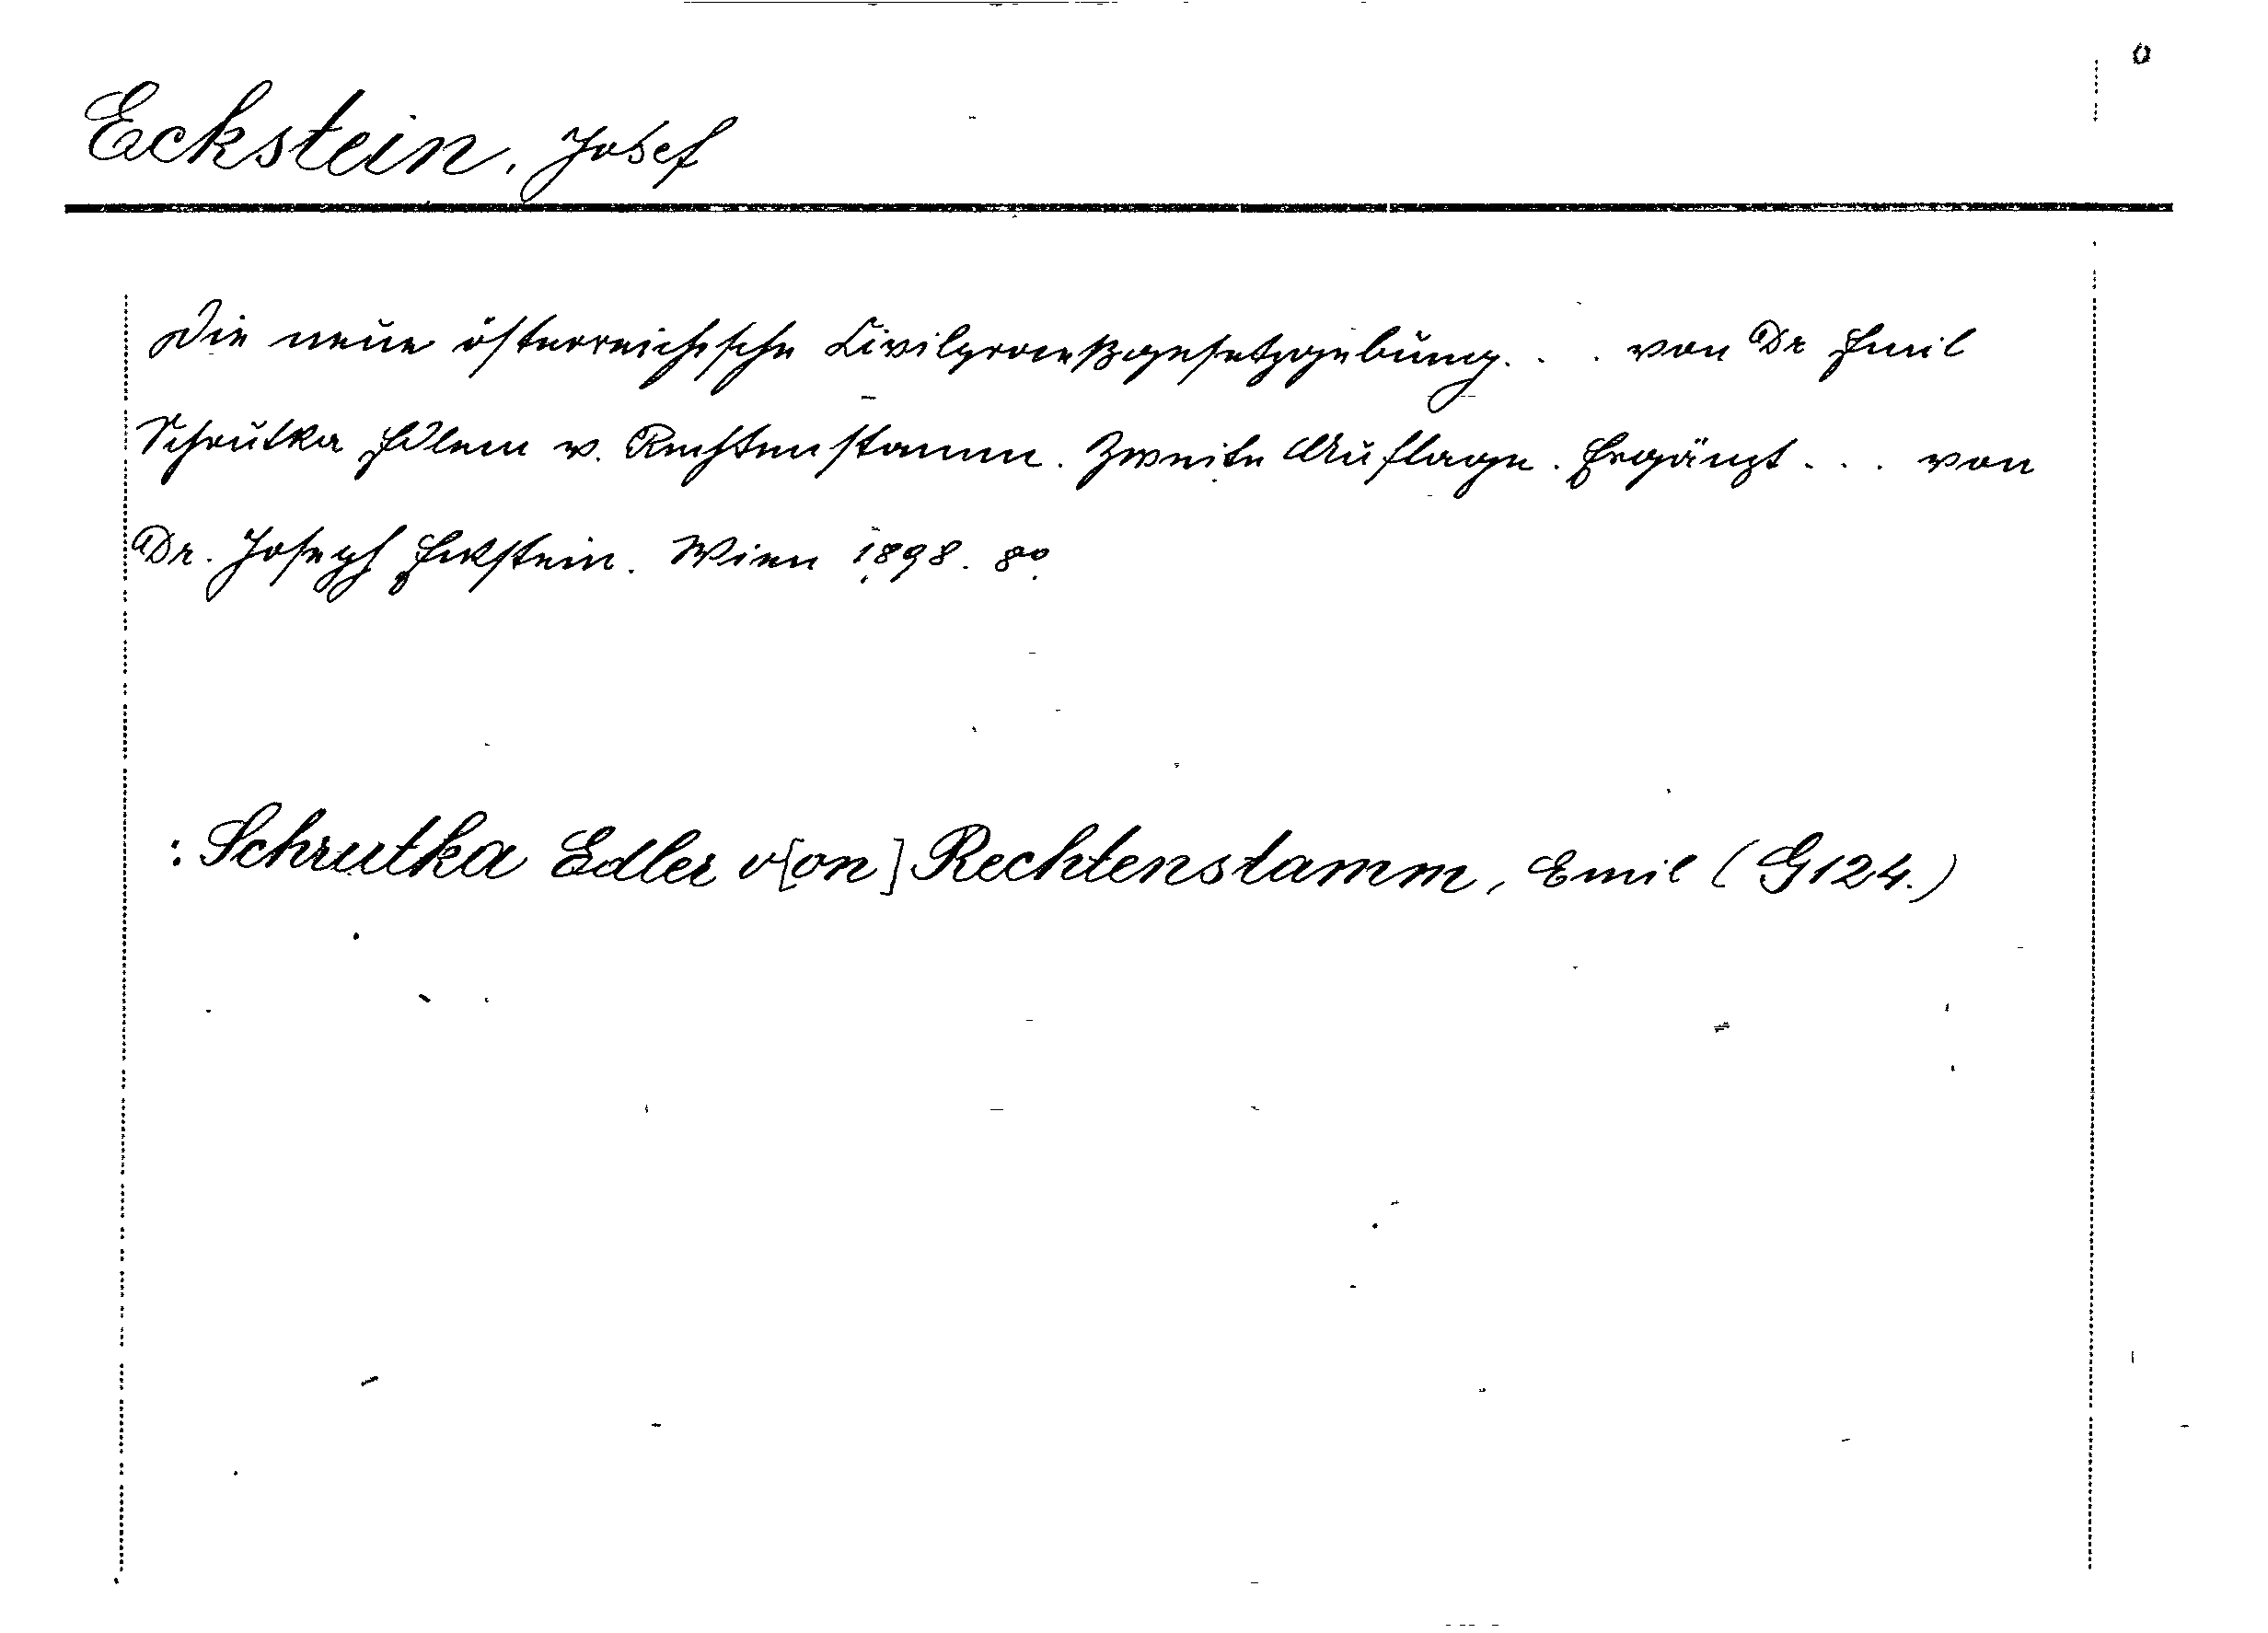 Eckstein, Josef
Die neue österreichische Civilproceßgesetzgebung. . . von Dr Emil
Schrutka Edlem v. Rechtenstamm. Zweite Auflage. Ergänzt . . . von
Dr. Joseph Eckstein. Wien 1898. 8º.
: Schrutka Edler v[on] Rechtenstamm, Emil (G124.)